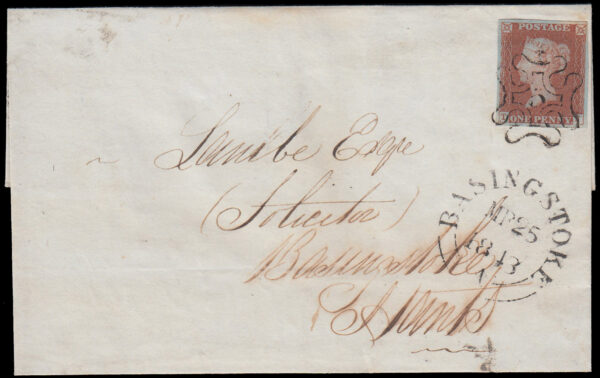 POSTAGE
ONE PENNY
Lambe Esqre
(Solicitor)
Basingstoke
Hants
BASINGSTOKE
MR25
1843